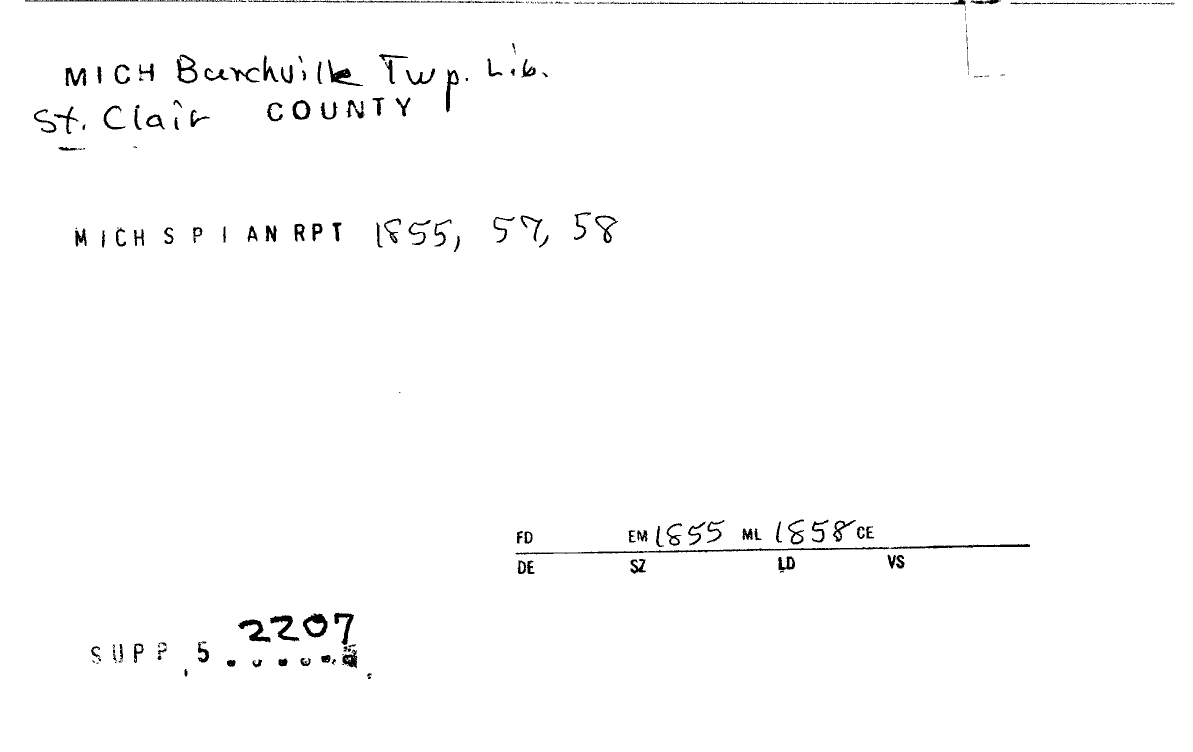 MICH Burchville Twp. Lib.
St. Clair COUNTY
MICH S P I AN RPT 1855, 57, 58
FD EM 1855 ML 1858 CE
DE SZ LD VS
2207
SUPP 5